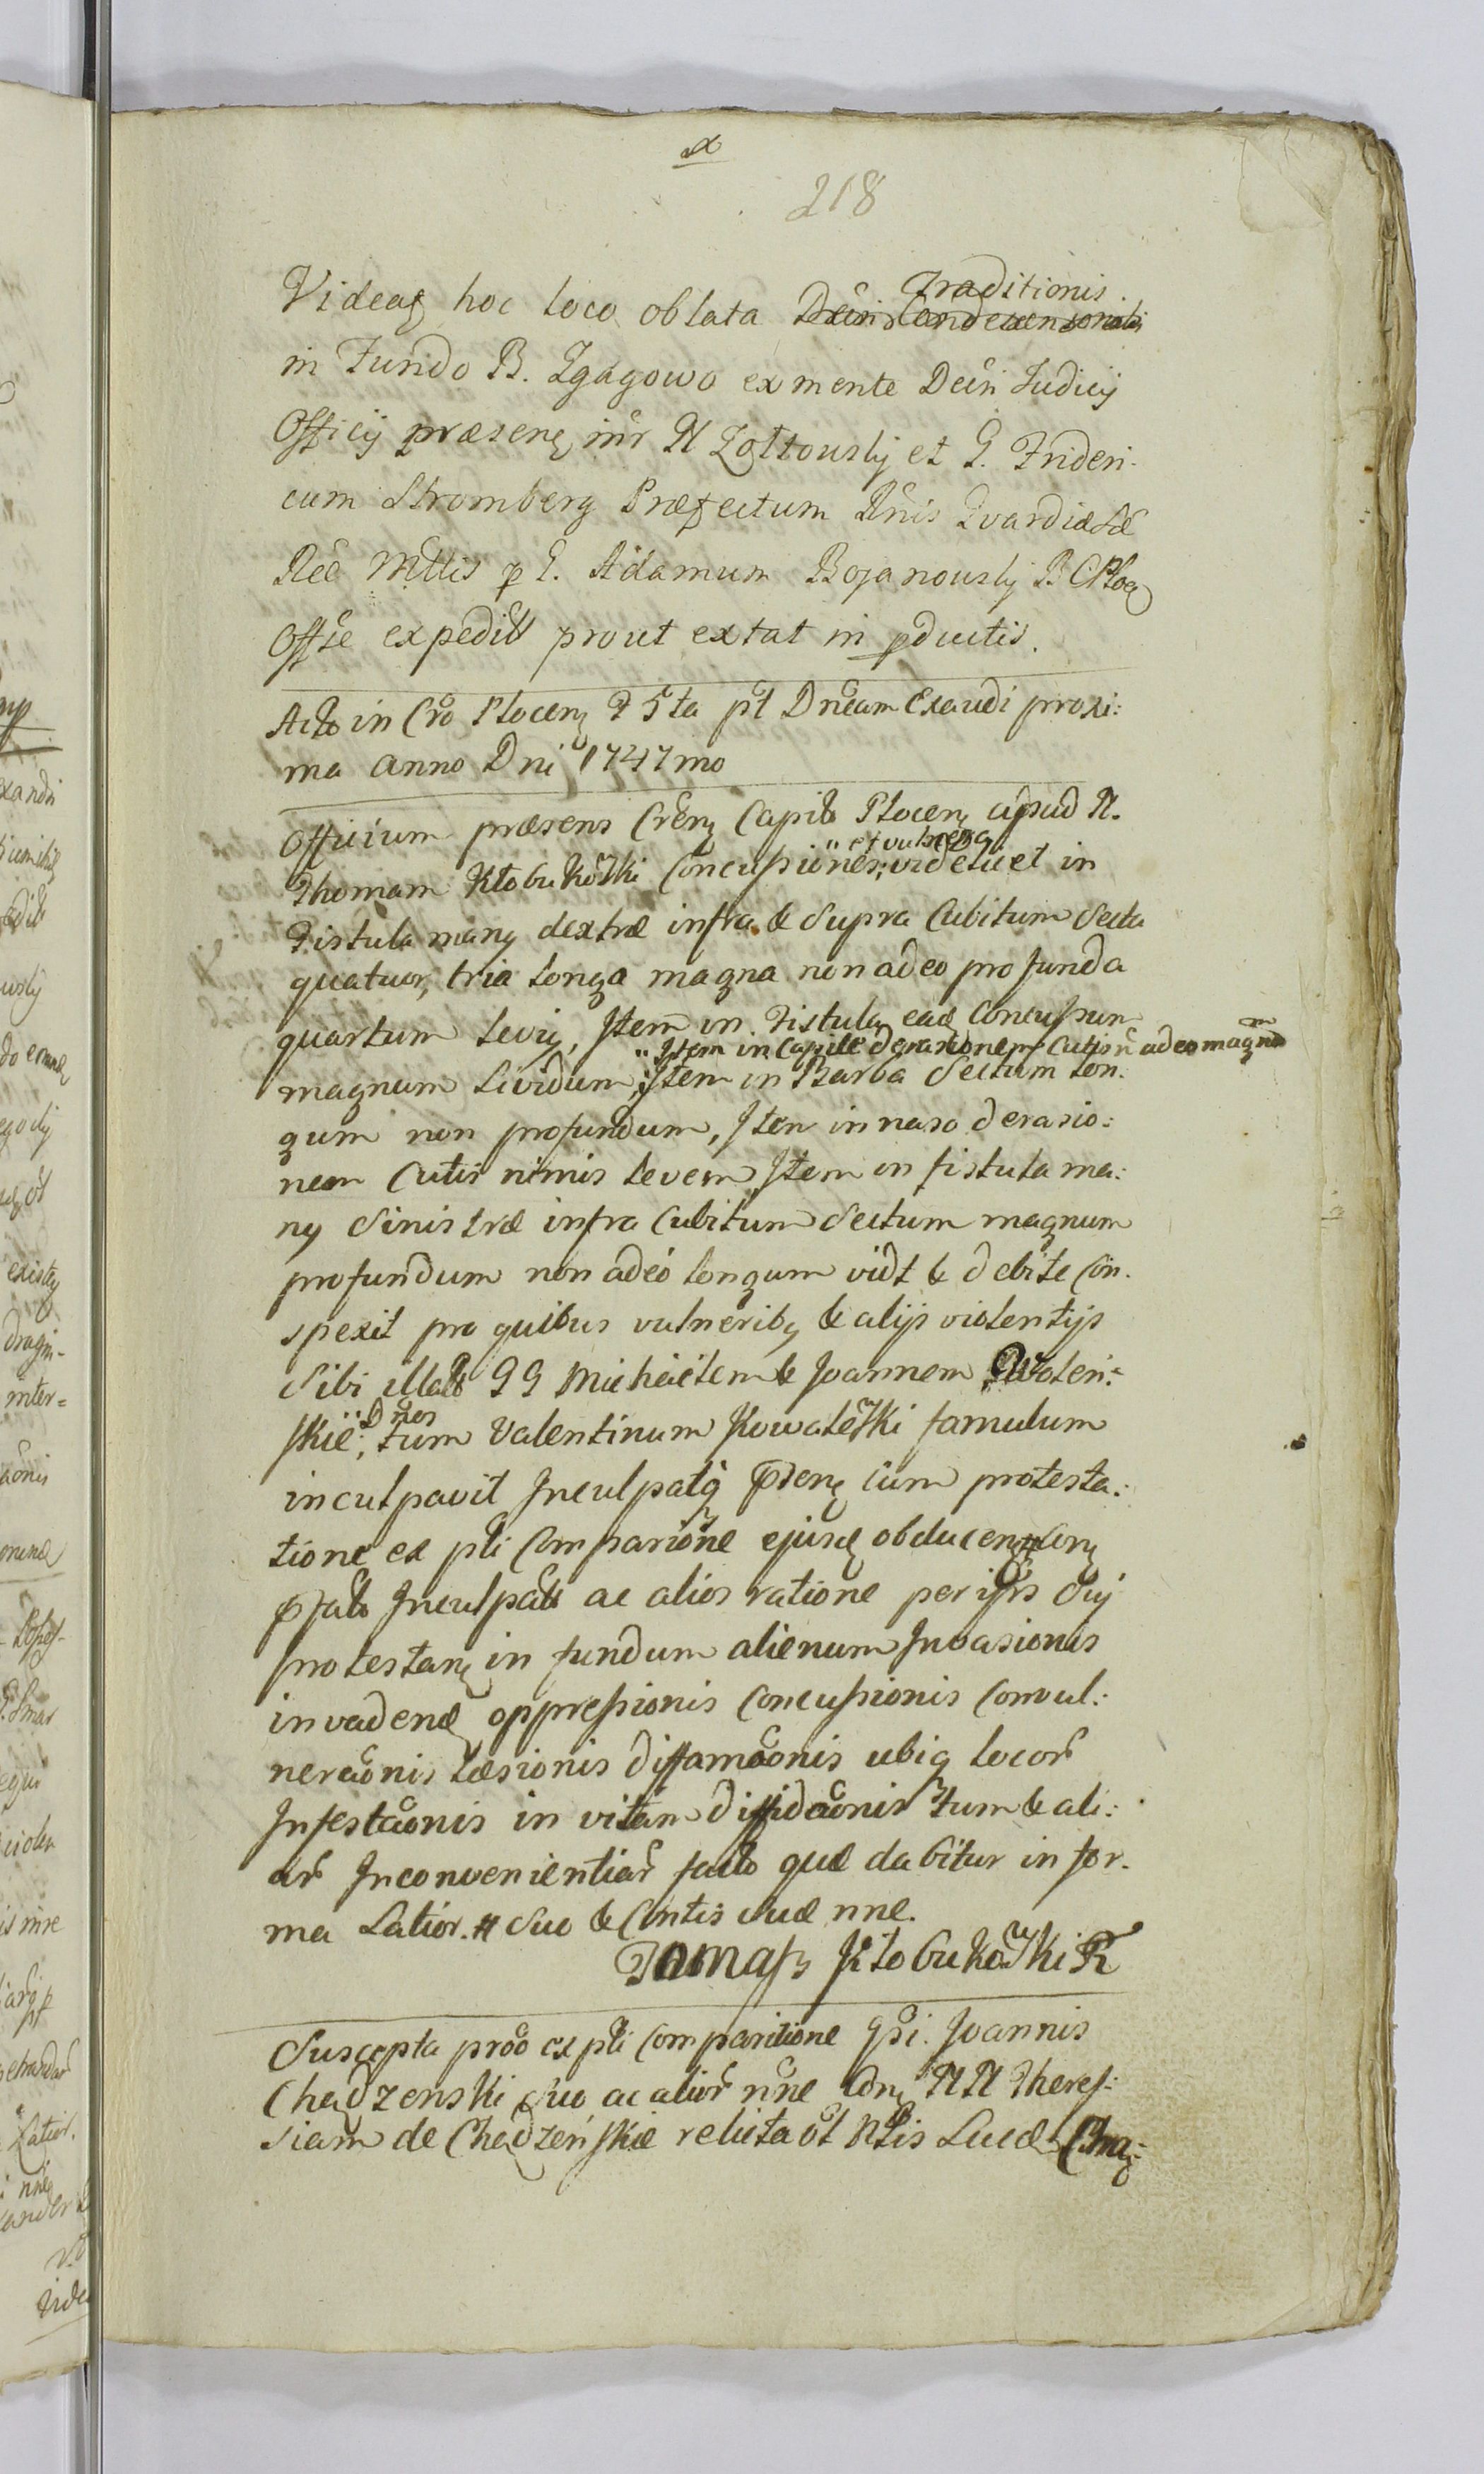 218
Traditionis
Videatꝫ hoc loco oblata Decisi Condescensionalis
in Fundo B. Zgagowo ex mente Decti Judicij
Officij præsenꝫ inr N Zołtowsky et G. Frideri-
cum Stromberg Præfectum Gvardiæ
Rẽe Mttis ꝑ G. Adamum Bojanowsky B C Ploꝫ
Offſe expedit prout extat in ꝓductis.
Acto in Cro Plocenꝫ F 5ta pt Dncam Exaudi proxi:
ma anno Dni 1747mo
Officium præsens Crenꝫ Capit Plocenꝫ apud N.
" et vulnera
Thomam Kłobukowski Concussiones, videlicet in
Fistula manꝫ dextræ infra & Supra Cubitum Secta
quatuor, tria longa magna non adeo profunda
quartum levi, Item in Fistula eadꝫ Concussum
" Item in Capite derasionem Cutis ñ adeo magnam
magnum lividum, Item in Barba Sectum lon:
gum non profundum, Item in naso derasio:
nem Cutis nimis levem Item in fistula ma:
nꝫ Sinistræ infra Cubitum Sectum magnum
profundum non adeo longum vidt & debite Con.
spexit pro quibus vulneribꝫ & alijs violentijs
Sibi illatis GG Michaelem & Joannem
" Dnos
skie, tum Valentinum Kowalewski famulum
inculpavit Inculpatꝫ cum protesta:
tione ex pti Comparitione ejusdꝫ obducenꝫ
Inculpatt ac alios ratione per ipsos Suj
protestanꝫ in fundum alienum Invasionis
invadendꝫ oppressionis Concussionis Convul:
neraonis læsionis diffamaonis ubiqꝫ locor
Infestaonis in vitam diffidaonis tum & ali:
ar Inconvenientiar facto quæ dabitur in for.
ma Latior. Suo & Cnetis Suæ nne.
Tomasz Kłobukowski R
Suscepta prõo ex pti Comparitione Gsi. Joannis
Chądzenski Suo, ac alior nne NN There:
siam de Chądzenskie relicta ol Ntis Lucæ